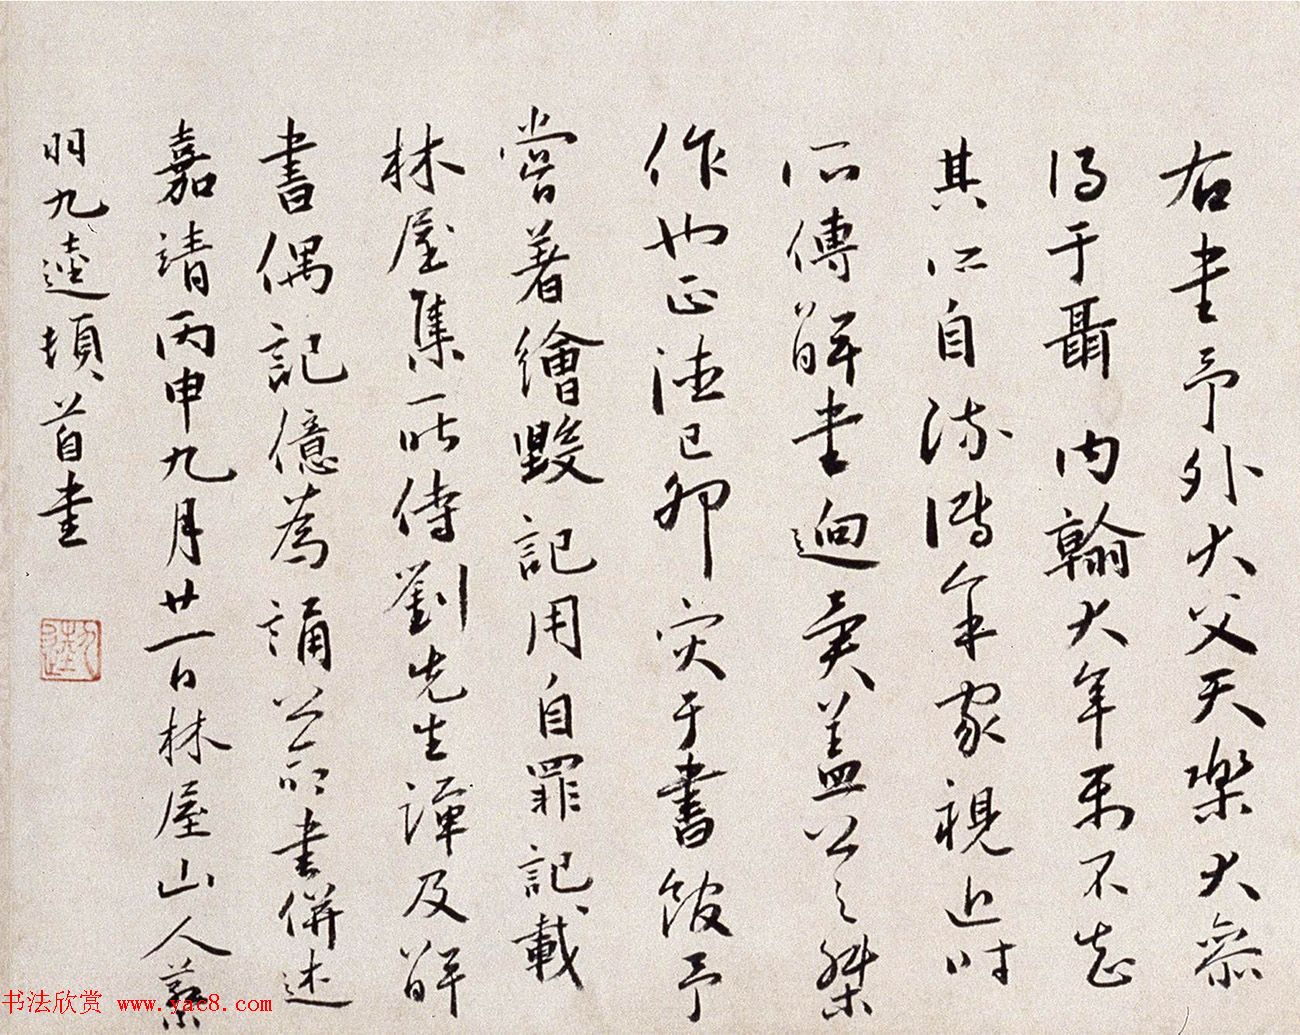 右書予外大父天樂大參
得于聶内翰大年萬不知
其所自流傳年家視近时
所傳解書迥異蓋公之桀
作也正德己卯灾于書館予
嘗著繪毀記用自罪記載
林屋集所侍劉先生諢及解
書偶記億為誦公所書併述
嘉靖丙申九月廿一日林屋山人蔡
羽九逵頓首書
书法欣赏 www.yac8.com